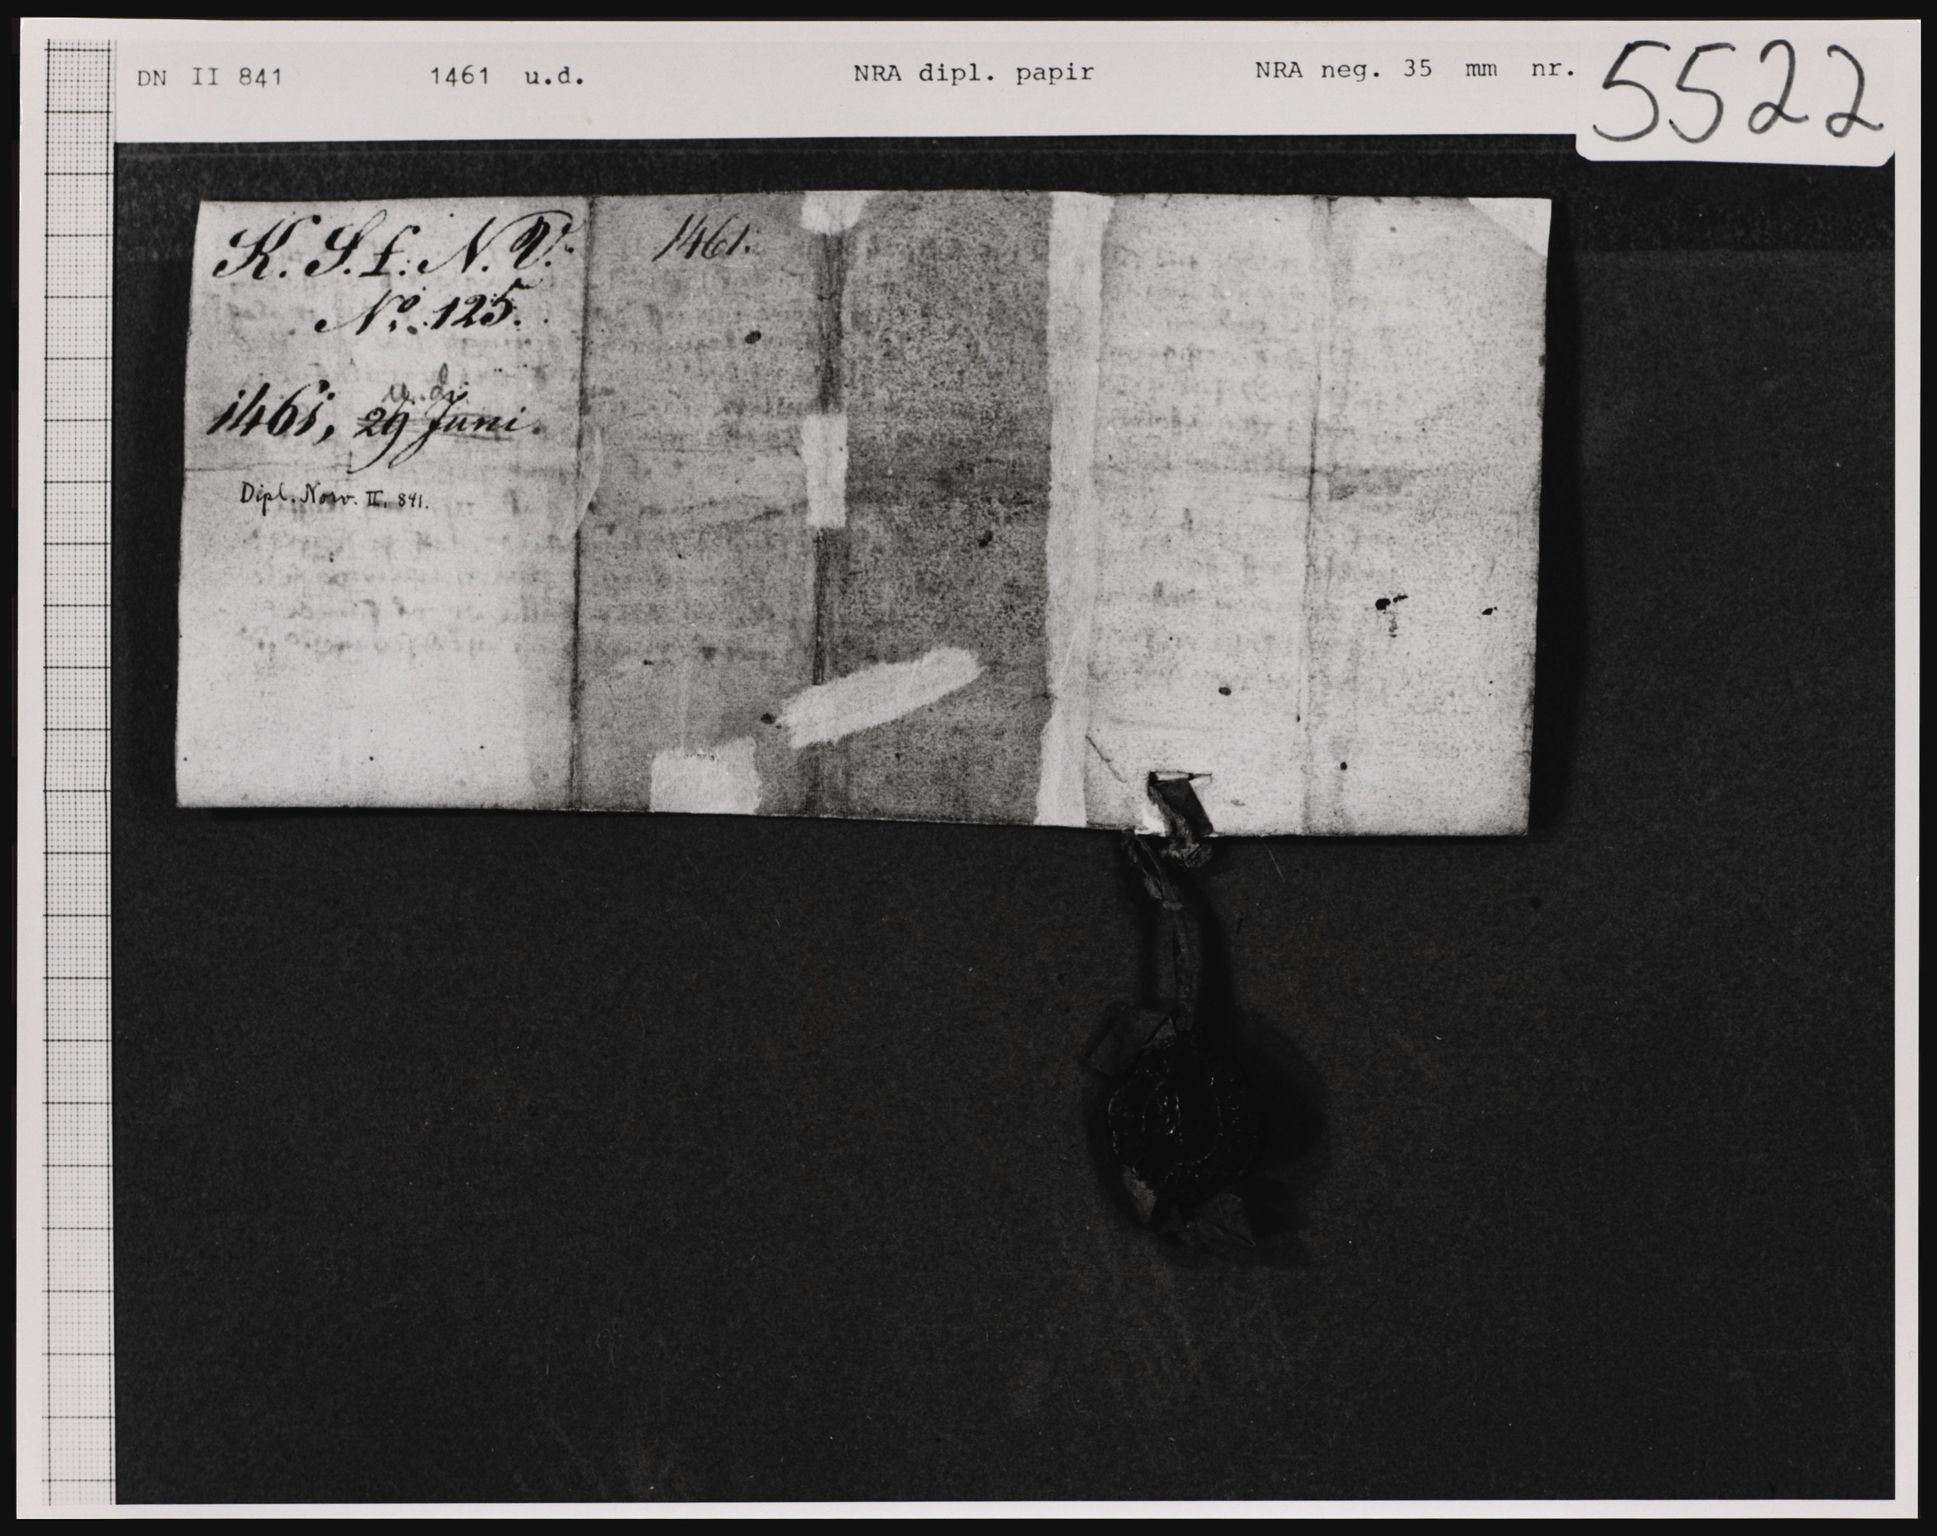 DN II 841 1461 u.d. NRA dipl. papir NRA neg. 35 mm nr. 5522
K. S. f. N. V.
No. 125.
1461.
u. d.
1461, 29 Juni.
Dipl. Norv. II. 841.